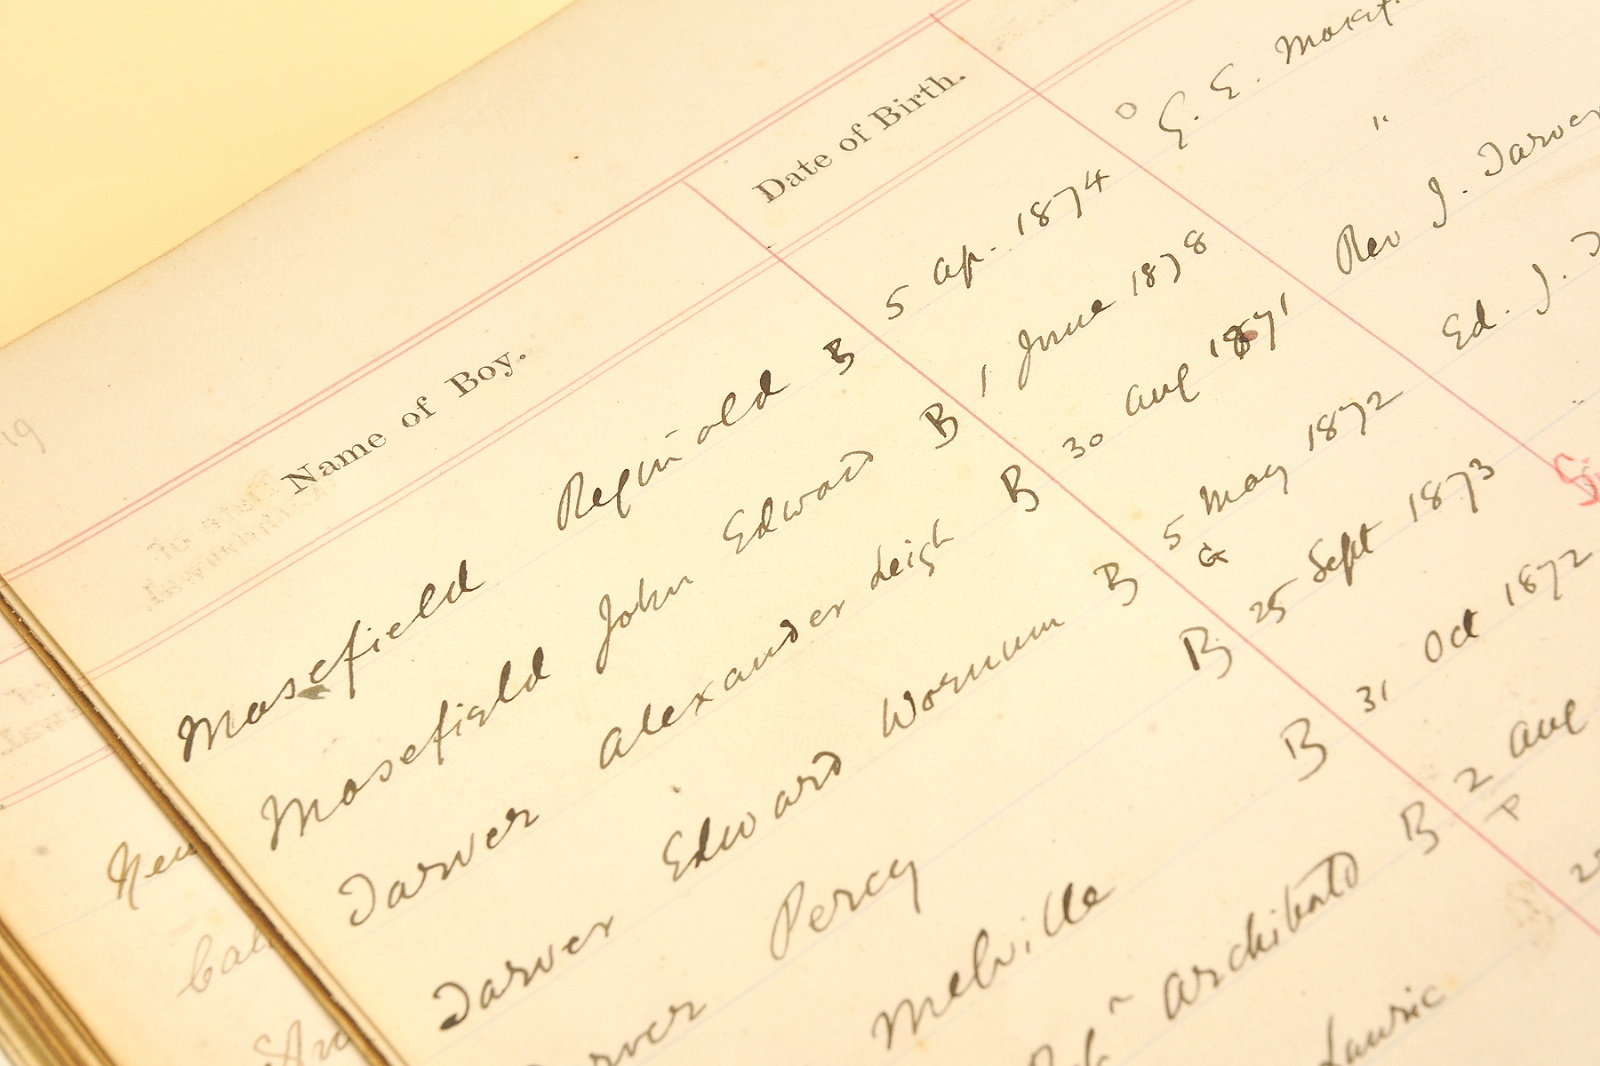 Name of Boy. Date of Birth.
Masefield Reginald B 5 Ap. 1874 G. E.
Masefield John Edward B 1 June 1878 "
Tarver Alexander Leigh B 30 Aug 1871 Rev J. Tarver
Tarver Edward Wornum B 5 May 1872 Ed. J.
G
Percy B 25 Sept 1873
Melville B 31 Oct 1872
Archibald B 2 Aug
P
Laurie
19